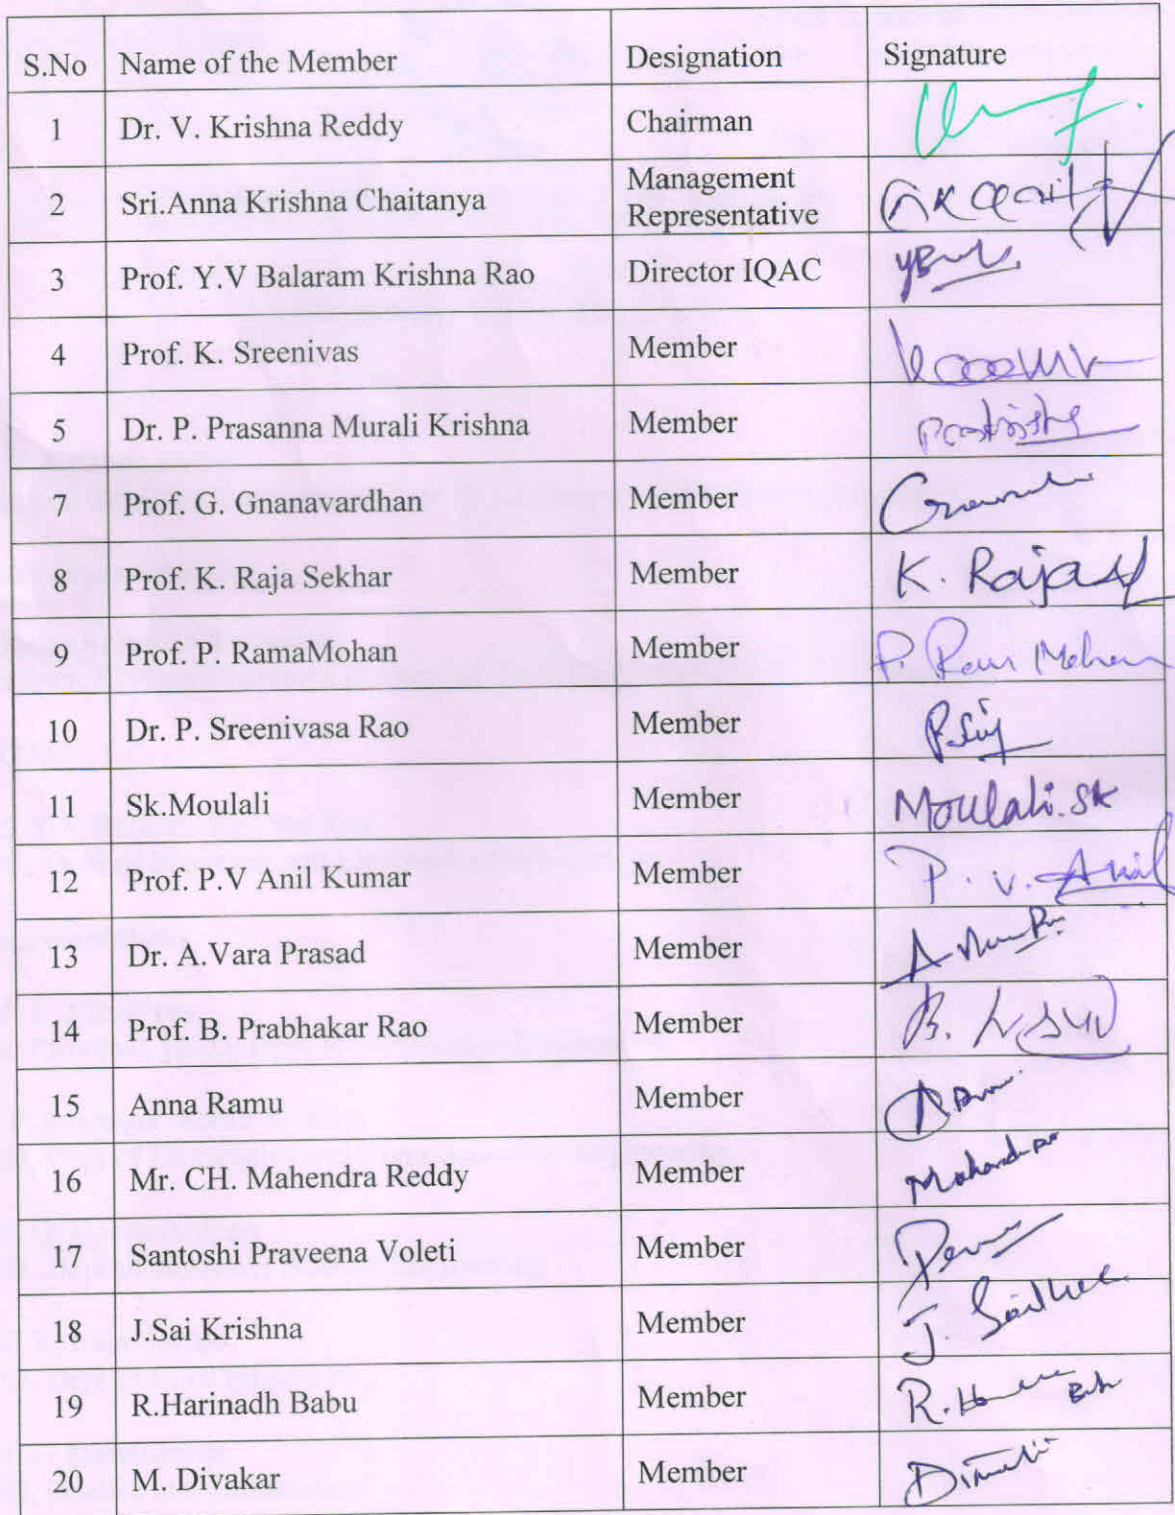 S.No Name of the Member Designation Signature
1 Dr. V. Krishna Reddy Chairman
2 Sri.Anna Krishna Chaitanya Management
Representative
3 Prof. Y.V Balaram Krishna Rao Director IQAC
4 Prof. K. Sreenivas Member
5 Dr. P. Prasanna Murali Krishna Member
7 Prof. G. Gnanavardhan Member
8 Prof. K. Raja Sekhar Member K. Raja
9 Prof. P. RamaMohan Member P. Ram Mohan
10 Dr. P. Sreenivasa Rao Member
11 Sk.Moulali Member Moulali.SK
12 Prof. P.V Anil Kumar Member P. V. Anil
13 Dr. A.Vara Prasad Member
14 Prof. B. Prabhakar Rao Member
15 Anna Ramu Member
16 Mr. CH. Mahendra Reddy Member
17 Santoshi Praveena Voleti Member
18 J.Sai Krishna Member
19 R.Harinadh Babu Member
20 M. Divakar Member